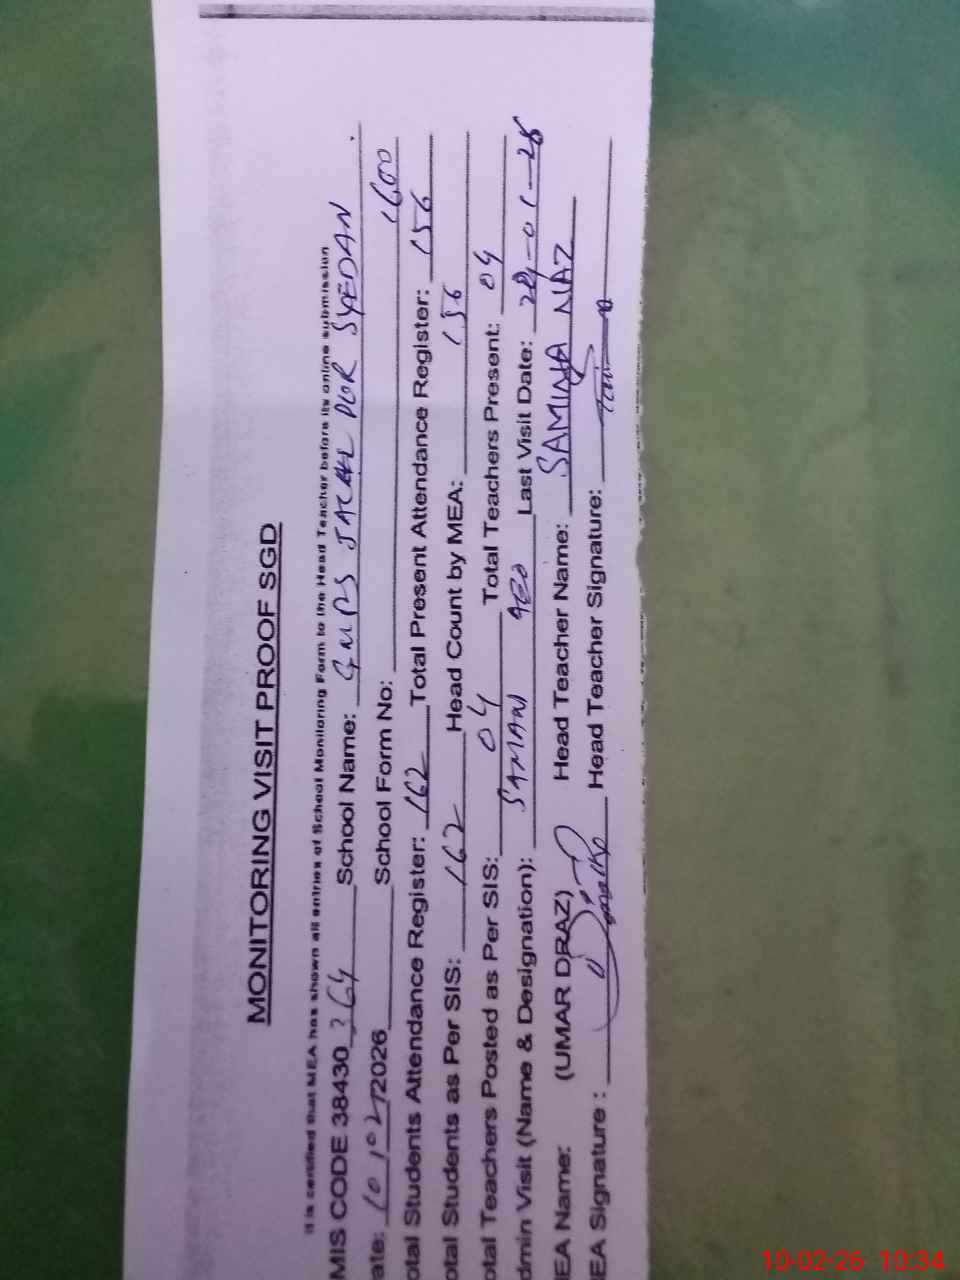 MONITORING VISIT PROOF SGD
It is certified that MEA has shown all entries of School Monitoring Form to the Head Teacher before its online submission
MIS CODE 38430 364 School Name: GMPS JALAL PUR SYEDAN
ate: 10/02/2026 School Form No: 1600
otal Students Attendance Register: 162 Total Present Attendance Register: 156
otal Students as Per SIS: 162 Head Count by MEA: 156
otal Teachers Posted as Per SIS: 04 Total Teachers Present: 04
dmin Visit (Name & Designation): SAMAN AEO Last Visit Date: 29-01-26
IEA Name: (UMAR DRAZ) Head Teacher Name: SAMINA NAZ
IEA Signature : Head Teacher Signature:
10-02-26 10:34